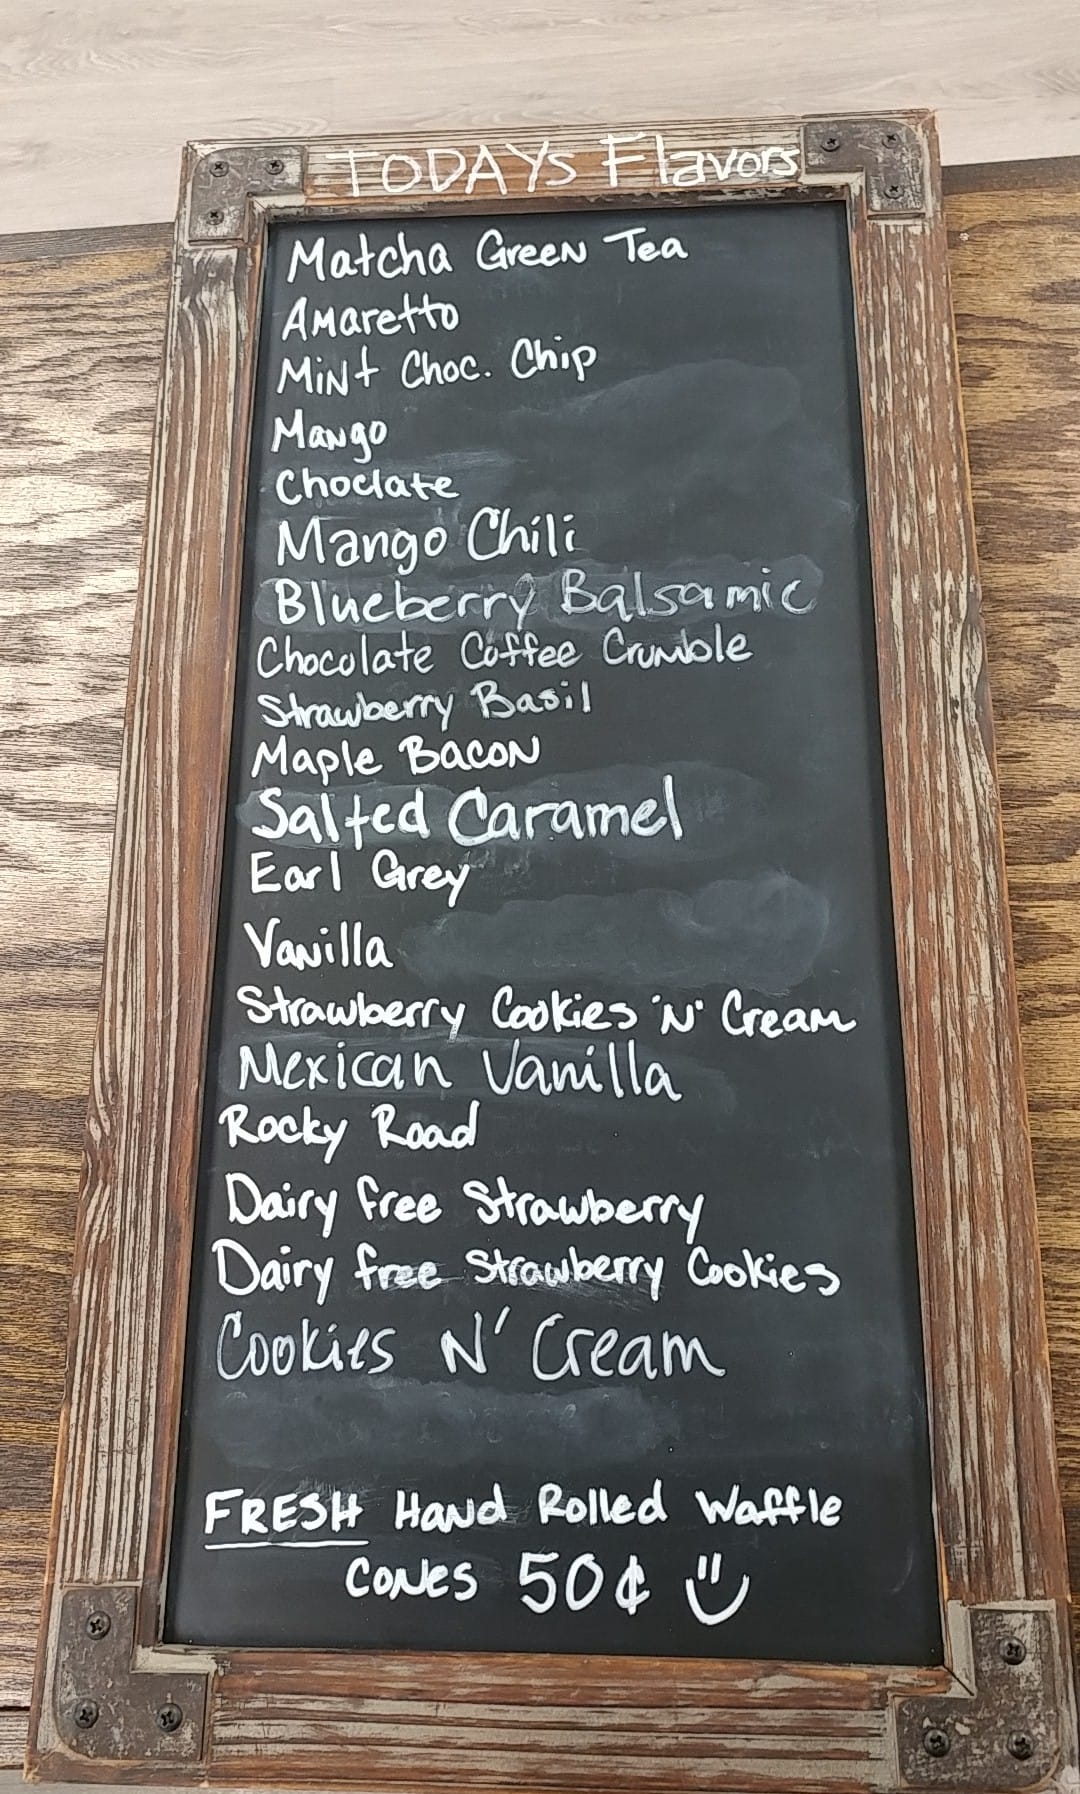 TODAYs Flavors
Matcha Green Tea
Amaretto
Mint Choc. Chip
Mango
Choclate
Mango Chili
Blueberry Balsamic
Chocolate Coffee Crumble
Strawberry Basil
Maple Bacon
Salted Caramel
Earl Grey
Vanilla
Strawberry Cookies 'N' Cream
Mexican Vanilla
Rocky Road
Dairy free Strawberry
Dairy free Strawberry Cookies
Cookies N' Cream
FRESH Hand Rolled Waffle
Cones 50¢